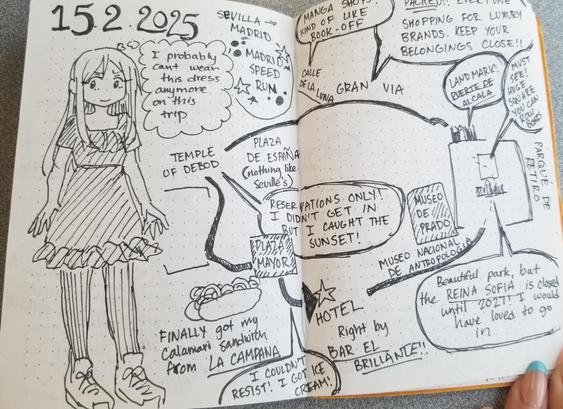 15.2.2025
SEVILLA →
MADRID
MADRID
SPEED
RUN
I probably
can't wear
this dress
anymore
on this
trip
TEMPLE
OF DEBOD
PLAZA
DE ESPAÑA
(nothing like
Seville's)
RESERVATIONS ONLY!
I DIDN'T GET IN
BUT I CAUGHT THE
SUNSET!
PLAZA
MAYOR
FINALLY got my
Calamari Sandwich
from LA CAMPANA
I COULDN'T
RESIST! I GOT ICE
CREAM!
MANGA SHOPS!
KIND OF LIKE
BOOK-OFF
CALLE
DE LA LUNA
GRAN VIA
PACKED!! EVERYONE
SHOPPING FOR LUXURY
BRANDS. KEEP YOUR
BELONGINGS CLOSE!!
LANDMARK!
PUERTE DE
ALCALA
MUST
SEE!
HUGE
SQUARE
YOU CAN
ROW
BOATS
PARQUE
DE
RETIRO
MUSEO
DE
PRADO
MUSEO NACIONAL
DE ANTOPOLOGIA
HOTEL
Right by
BAR EL
BRILLANTE!!
Beautiful park, but
the REINA SOFIA is closed
until 2027! I would
have loved to go
in